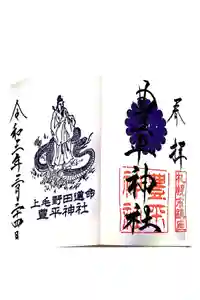 奉拝
豊平神社
豊平神社
上毛野田道命
豊平神社
令和三年二月二十四日